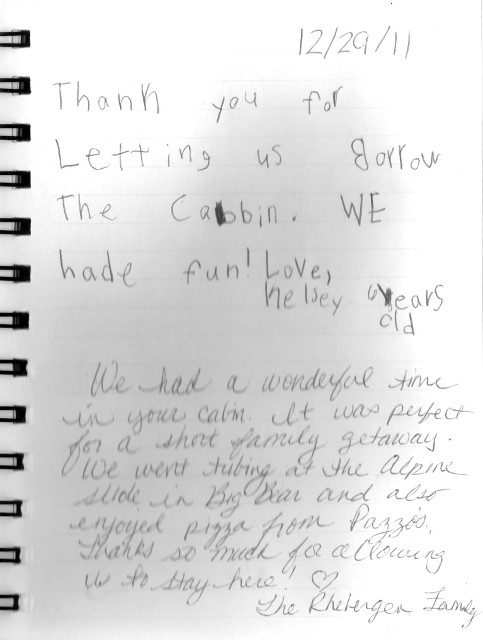 12/29/11
Thank you for
Letting us Borrow
The Cabbin. WE
hade fun! Love,
Kelsey 6 years
old
We had a wonderful time
in your cabin. It was perfect
for a short family getaway.
We went tubing at the Alpine
slide in Big Bear and also
enjoyed pizza from Pazzo's.
Thanks so much for allowing
us to stay here! ♡
The Rheberger Family